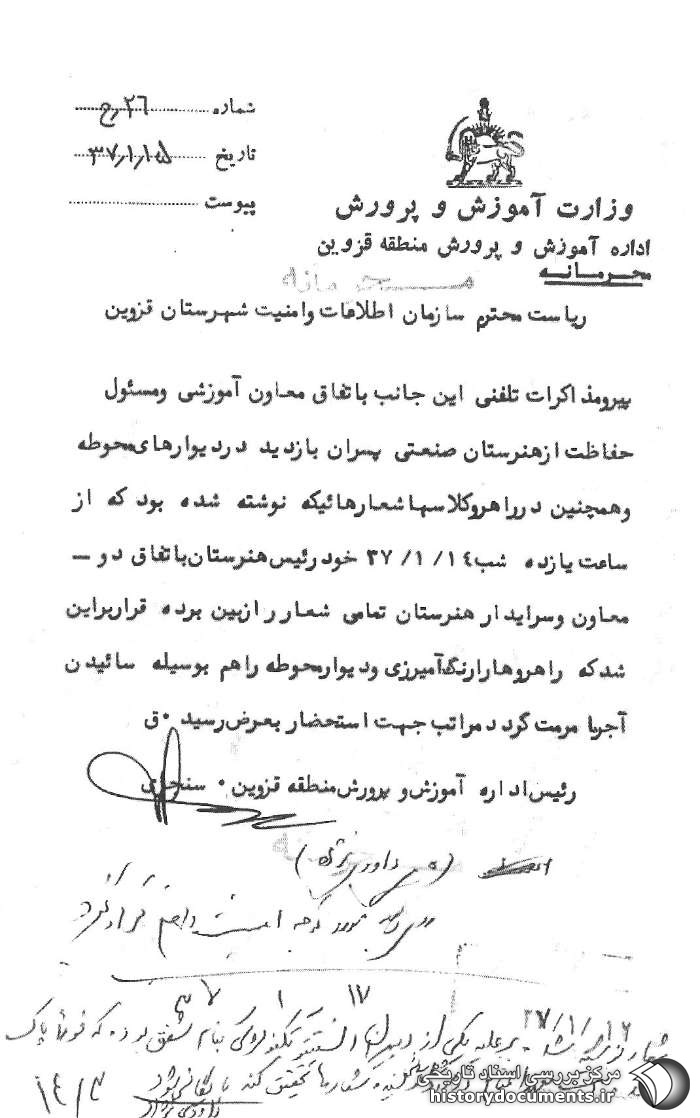 شماره ۲۶رح
تاریخ ۳۷٫۱٫۱۵
پیوست
وزارت آموزش و پرورش
اداره آموزش و پرورش منطقه قزوین
محرمانه
محرمانه
ریاست محترم سازمان اطلاعات وامنیت شهرستان قزوین
پیرومذاکرات تلفنی این جانب باتفاق معاون آموزشی ومسئول
حفاظت ازهنرستان صنعتی پسران بازدید دردیوارهای‌محوطه
وهمچنین درراهروکلاسهاشعارهائیکه نوشته شده بود که از
ساعت یازده شب۱۴ /۱/ ۳۷ خودرئیس هنرستان‌باتفاق دو ــ
معاون وسرایدار هنرستان تمامی شعار رازبین برده قراربراین
شدکه راهروهارارنگ‌آمیرزی ودیوارمحوطه راهم بوسیله سائیدن
آجرها مرمت گردد مراتب جهت استحضار بعرض‌رسید ۰ق
رئیس‌اداره آموزش‌و پرورش‌منطقه قزوین ۰ سنجری
مورد توجه است قرار گیرد
۱۷ ۱ ۳۷
۳۷/۱/۱۶
یکی از دبیران انستیتو تکنولوژی بنام مشفق بوده که فوراً پاک
تحقیق کند
۱۴/۳
مرکز بررسی اسناد تاریخی
historydocuments.ir